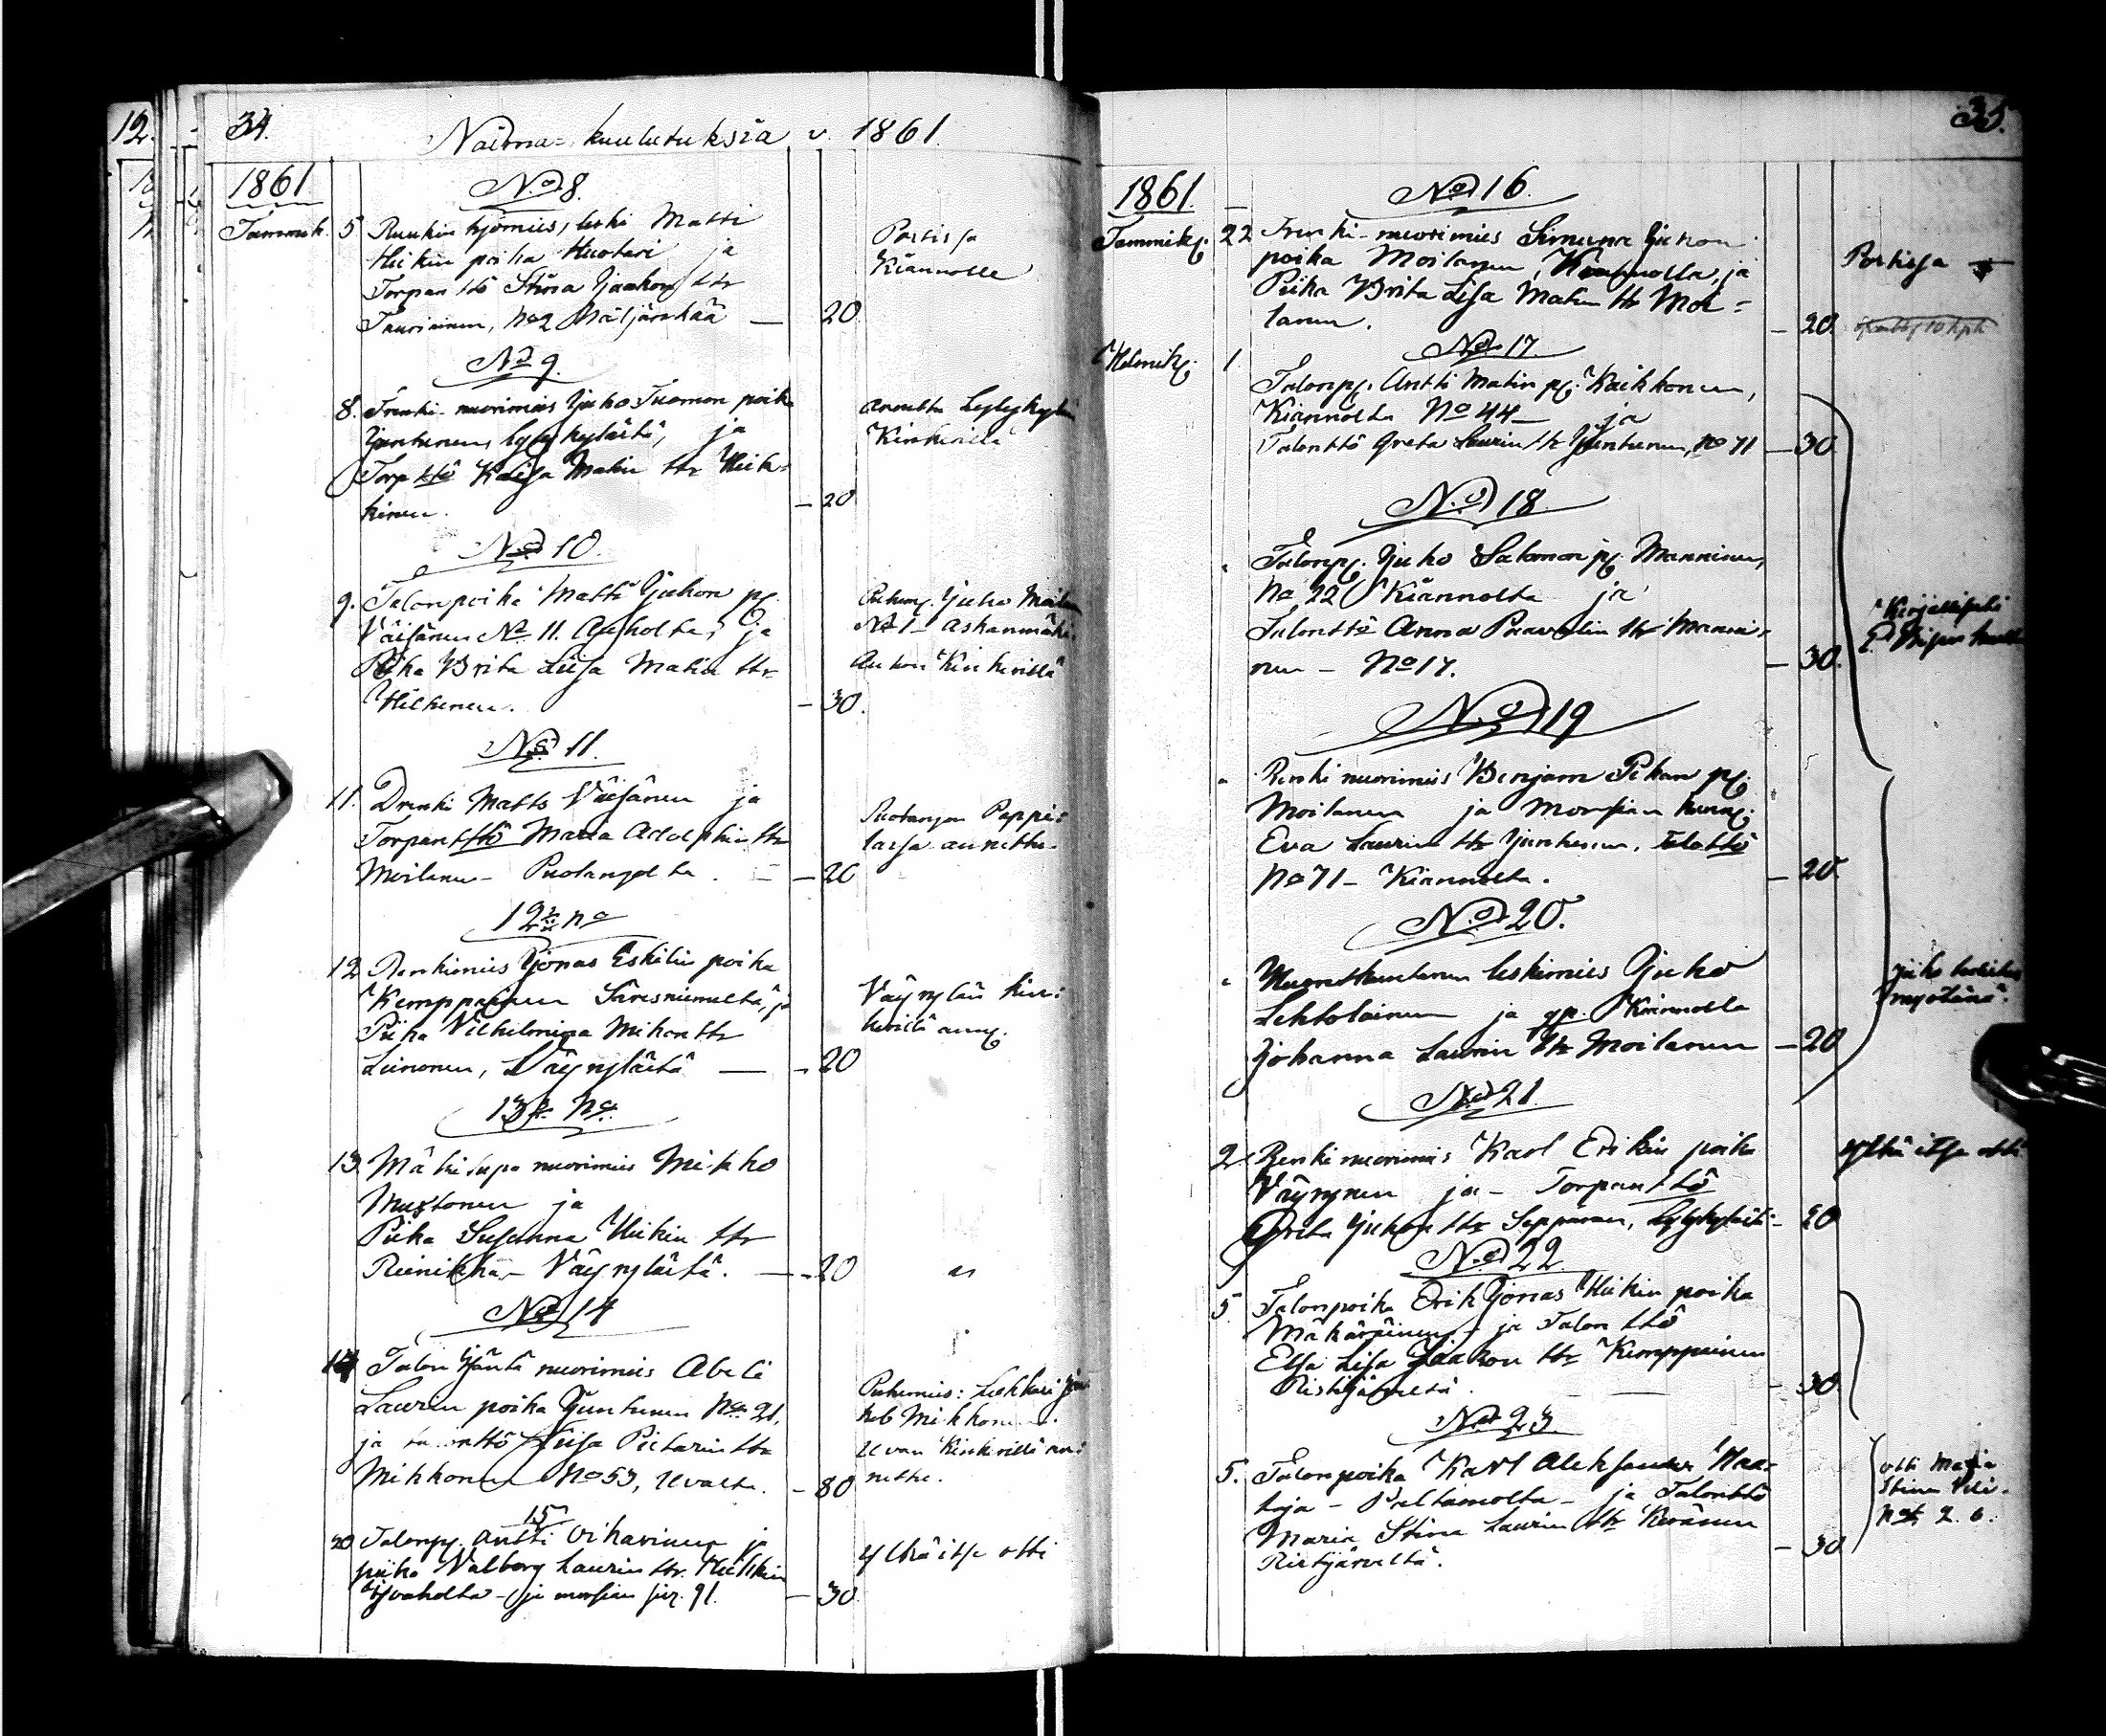 34.
Naima-kuulutuksia v. 1861.
1861
No 8.
Tammik. 5 Ruukin työmies, leski Matti
Heikin poika Huotari ja
Torpan ttö Stina Jaakon ttr
Tauriainen, No 2 Näljänkää — 20
Postissa
Kiannolle
No 9.
8. Trenki-nuorimies Juho Tuomon poika
Juntunen, Lylykylästä, ja
Torp ttö Kaisa Matin ttr Heik-
kinen. — 20
annettu Lylykylän
Kinkerillä
No 10.
9. Talonpoika Matti Juhon pg.
Väisänen No 11. Auholta, ja
Piika Brita Liisa Matin ttr
Hilkenen. — 30.
Puhem. Juho Moilanen
No 1 - Askanmäki
Auhon Kinkerillä
No 11.
11. Drenki Matts Väisänen ja
Torpan ttö Maria Adolphin ttr
Moilanen - Puolangolta. — 20
Puolangan Pappi-
lassa annettu.
12 no
12 Renkimies Jonas Eskelin poika
Kemppainen Säresniemeltä, ja
Piika Vilhelmina Mikon ttr
Leinonen, Väyrylästä — 20
Väyrylän kin-
kerillä ann.
13 No.
13. Mäkitupa nuorimies Mikko
Mustonen ja
Piika Susanna Heikin ttr
Reinikka - Väyrylästä. — 20
No 14
14 Talon Isäntä nuorimies Abeli
Laurin poika Juntunen No 21,
ja ttö Liisa Pietarin ttr
Mikkonen No 53, Uvalta. — 80
Puhemies: Lukkari
Mikkonen.
Uvan Kinkerillä an-
nettu.
15
20 Talonpg. Antti Vihavinen ja
piika Valborg Laurin ttr. Heikkin
ja morsian 91. — 30
Ylkä itse otti
35.
1861.
No 16.
Tammik. 22 Trenki-nuorimies Simuna Juhon
poika Moilanen, Kiannolta, ja
Piika Brita Lisa Matin ttr Moi-
lanen. — 20.
Postissa
No 17.
Helmik. 1. Talonpg. Antti Matin pg. Kaikkonen,
Kiannolta No 44 — ja
Talonttö Greta Laurin ttr Juntunen, No 71 — 30
No 18.
Talonpg. Juho Salomon pg. Manninen,
No 22 Kiannolta ja
Talonttö Anna Paavalin ttr Manni-
nen - No 17. — 30.
Kirjallisesti
No 19
Renki nuorimies Benjam Pekan pg.
Moilanen ja Morsian kunn.
Eva Laurin ttr Juntunen, Talottö
No 71 - Kiannolta. — 20
No 20.
leskimies Juho
Lehtolainen ja Kiannolta
Johanna Laurin ttr Moilanen — 20
myötänä.
No 21.
2. Renki nuorimies Karl Erikin poika
Väyrynen ja - Torpan ttö
Greta Juhon ttr Seppänen, Lylykylästä — 20
Ylkä itse otti
No 22.
5 Talonpoika Erik Jonas Heikin poika
Mäkäräinen - ja Talon ttö
Elsa Lisa Jaakon ttr Kemppainen
Ristijärveltä. — 30.
No 23.
5. Talonpoika Karl Aleksander Haa-
taja - Paltamolta - ja Talonttö
Maria Stina Laurin ttr Keränen
Ristijärveltä. — 30
otti Maria
Stina
No 2. 6.